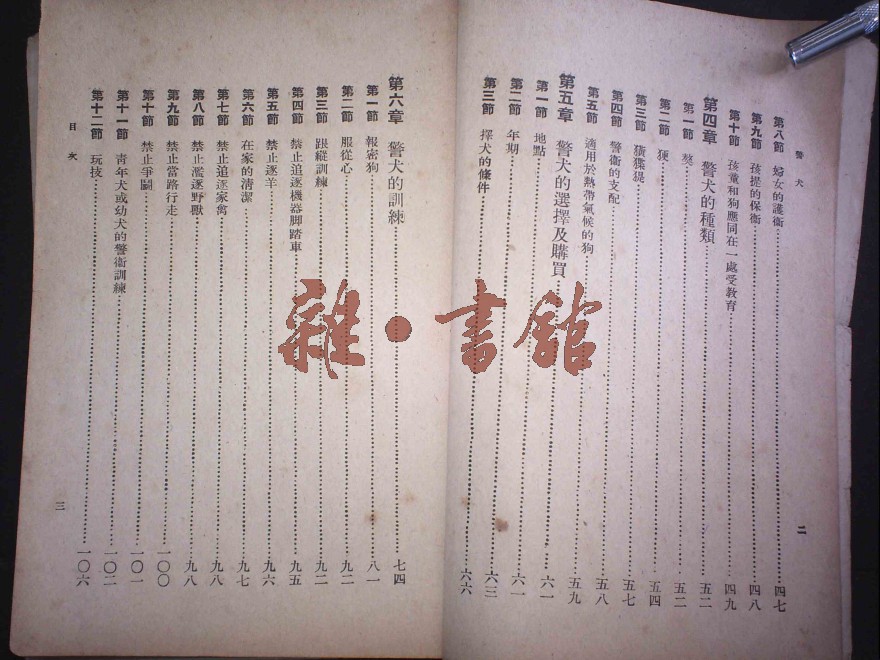 警犬
二
第八節 婦女的護衛 四七
第九節 孩提的保衛 四八
第十節 孩童和狗應同在一處受教育 四九
第四章 警犬的種類 五二
第一節 獒 五二
第二節 㹴 五四
第三節 獚猥猥 五七
第四節 警衛的支配 五八
第五節 適用於熱帶氣候的狗 五九
第五章 警犬的選擇及購買 六一
第一節 地點 六一
第二節 年期 六一
第三節 擇犬的條件 六三
六六
第六章 警犬的訓練 七四
第一節 報密狗 八一
第二節 服從心 九二
第三節 跟縱訓練 九二
第四節 禁止追逐機器脚踏車 九五
第五節 禁止逐羊 九六
第六節 在家的清潔 九七
第七節 禁止追逐家禽 九八
第八節 禁止濫逐野獸 九八
第九節 禁止當路行走 一〇〇
第十節 禁止爭鬭 一〇一
第十一節 青年犬或幼犬的警衛訓練 一〇二
第十二節 玩技 一〇六
目次
三
雜·書館